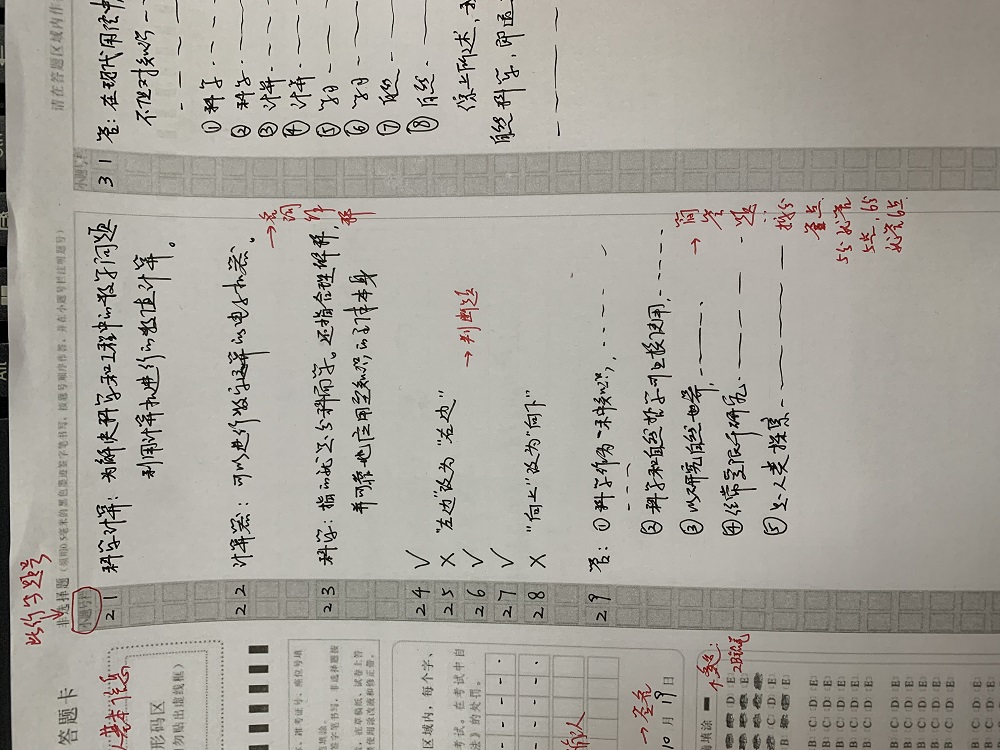 Alt
此行写题号
答题卡
非选择题（须用0.5毫米的黑色墨迹签字笔书写，按题号顺序作答，并在小题号栏注明题号）
请在答题区域内作
人基本信息
形码区
勿贴出虚线框）
小题号栏
21 科学计算：为解决科学和工程中的数学问题
利用计算机进行的数值计算。
22 计算器：可以进行数字运算的电子机器。
→名词解释
23 科学：指的就是分科而学。还指合理解释，
并可靠地应用至知识的主体本身
24 ✓
25 × “左边”改为“右边”
26 ✓
→判断题
27 ✓
28 × “向上”改为“向下”
29 答：①科学作为一种知识，
②科学和自然哲学可互换使用，
③以研究自然世界，
④经常受限于研究
⑤是人类探索
→简答题：按分答点
5分就答5点，6分就答6点
小题号栏
31 答：在现代用法中
不但对知识
①科学
②科学
③计算
④计算
⑤学习
⑥学习
⑦自然
⑧自然
综上所述，
自然科学，即
、准考证号、座位号填
签字笔书写，非选择题按
，在草稿纸、试卷上答
使用涂改液和修正带。
区域内，每个字、
考试。在考试中自
法》的处罚。
→签名
10月19日
填涂
2B铅笔